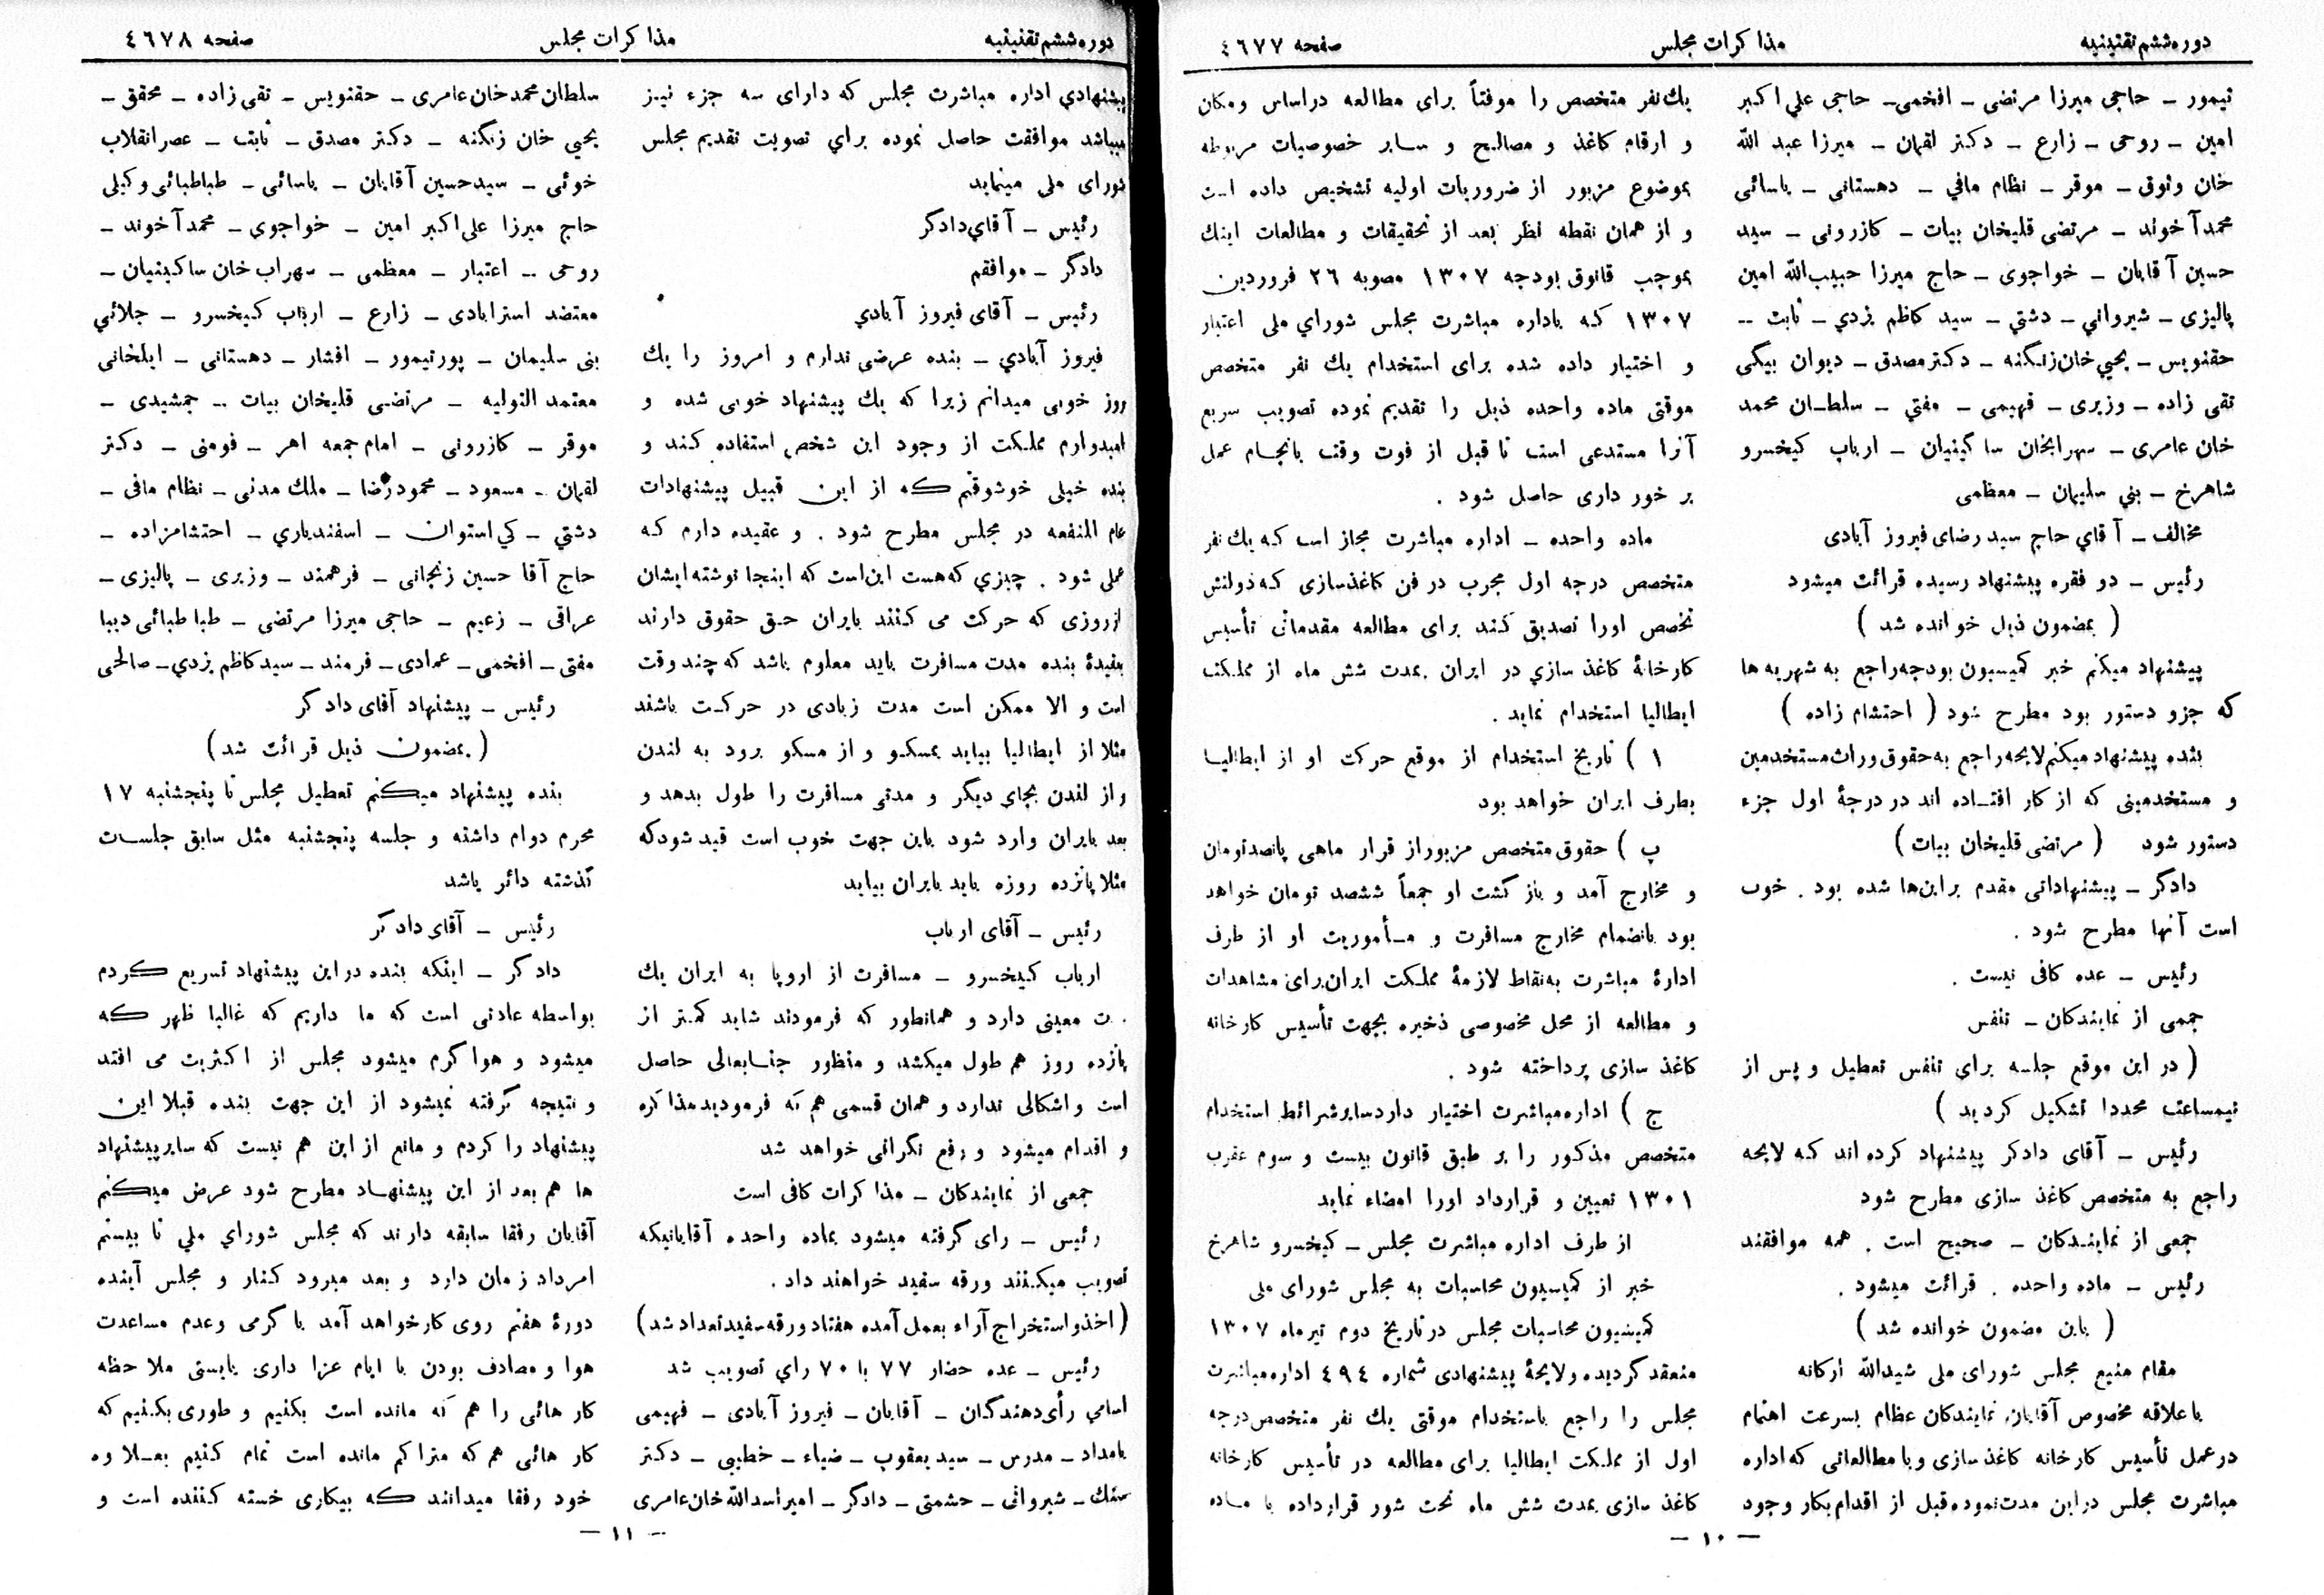 دوره ششم تقنینیه
مذاکرات مجلس
صفحه ٤٦٧٧
تیمور – حاجی میرزا مرتضی – افخمی – حاجی علی اکبر
امین – روحی – زارع – دکتر لقمان – میرزا عبد الله
خان وثوق – موقر – نظام مافي – دهستانی – یاسائی
محمد آخوند – مرتضی قلیخان بیات – کازرونی – سید
حسین آقایان – خواجوی – حاج میرزا حبیب الله امین
پالیزی – شیرواني – دشتي – سید کاظم یزدي – ثابت --
حقنویس – یحیي خان زنگنه – دکتر مصدق – دیوان بیگی
تقی زاده – وزیری – فهیمی – مفتي – سلطان محمد
خان عامری – سهرابخان ساگینیان – ارباب کیخسرو
شاهرخ – بني سلیمان – معظمی
مخالف – آقاي حاج سید رضای فیروز آبادی
رئیس – دو فقره پیشنهاد رسیده قرائت میشود
( بمضمون ذیل خوانده شد )
پیشنهاد میکنم خبر کمیسیون بودجه راجع به شهریه ها
که جزو دستور بود مطرح شود ( احتشام زاده )
بنده پیشنهاد میکنم لایحه راجع به حقوق وراث مستخدمین
و مستخدمینی که از کار افتاده اند در درجهٔ اول جزء
دستور شود ( مرتضی قلیخان بیات )
دادگر – پیشنهاداتی مقدم بر این‌ها شده بود . خوب
است آنها مطرح شود .
رئیس – عده کافی نیست .
جمعی از نمایندکان – تنفس
( در این موقع جلسه برای تنفس تعطیل و پس از
نیمساعت مجددا تشکیل کردید )
رئیس – آقای دادکر پیشنهاد کرده اند که لایحه
راجع به متخصص کاغذ سازی مطرح شود
جمعی از نمایندکان – صحیح است . همه موافقند
رئیس – ماده واحده . قرائت میشود .
( باین مضمون خوانده شد )
مقام منیع مجلس شورای ملی شیدالله ارکانه
با علاقه مخصوص آقایان نمایندکان عظام بسرعت اهتمام
در عمل تأسیس کارخانه کاغذ سازی و با مطالعاتی که اداره
مباشرت مجلس در این مدت نموده قبل از اقدام بکار وجود
یك نفر متخصص را موقتاً برای مطالعه در اساس و مکان
و ارقام کاغذ و مصالح و سایر خصوصیات مربوطه
بموضوع مزبور از ضروریات اولیه تشخیص داده است
و از همان نقطه نظر بعد از تحقیقات و مطالعات اینك
بموجب قانون بودجه ١٣٠٧ مصوبه ٢٦ فروردین
١٣٠٧ که باداره مباشرت مجلس شورای ملی اعتبار
و اختیار داده شده برای استخدام یك نفر متخصص
موقتی ماده واحده ذیل را تقدیم نموده تصویب سریع
آنرا مستدعی است تا قبل از فوت وقت بانجام عمل
بر خور داری حاصل شود .
ماده واحده – اداره مباشرت مجاز است که یك نفر
متخصص درجه اول مجرب در فن کاغذ سازی که دولتش
تخصص اورا تصدیق کند برای مطالعه مقدماتی تأسیس
کارخانهٔ کاغذ سازي در ایران بمدت شش ماه از مملکت
ایطالیا استخدام نماید .
١ ) تاریخ استخدام از موقع حرکت او از ایطالیا
بطرف ایران خواهد بود
پ ) حقوق متخصص مزبور از قرار ماهی پانصد تومان
و مخارج آمد و باز کشت او جمعاً ششصد تومان خواهد
بود بانضمام مخارج مسافرت و مأموریت او از طرف
ادارهٔ مباشرت به نقاط لازمهٔ مملکت ایران برای مشاهدات
و مطالعه از محل مخصوصی ذخیره بجهت تأسیس کارخانه
کاغذ سازی پرداخته شود .
ج ) اداره مباشرت اختیار دارد سایر شرائط استخدام
متخصص مذکور را بر طبق قانون بیست و سوم عقرب
١٣٠١ تعیین و قرارداد اورا امضاء نماید
از طرف اداره مباشرت مجلس – کیخسرو شاهرخ
خبر از کمیسیون محاسبات به مجلس شورای ملی
کمیسیون محاسبات مجلس در تاریخ دوم تیر ماه ١٣٠٧
منعقد کردیده و لایحهٔ پیشنهادی شماره ٤٩٤ اداره مباشرت
مجلس را راجع باستخدام موقتی یك نفر متخصص درجه
اول از مملکت ایطالیا برای مطالعه در تأسیس کارخانه
کاغذ سازی بمدت شش ماه تحت شور قرار داده با ماده
– ١٠ –
دوره ششم تقنینیه
مذاکرات مجلس
صفحه ٤٦٧٨
پیشنهادي اداره مباشرت مجلس که دارای سه جزء نیز
میباشد موافقت حاصل نموده برای تصویت تقدیم مجلس
شورای ملی مینماید
رئیس – آقاي دادکر
دادگر – موافقم
رئیس – آقای فیروز آبادي
فیروز آبادي – بنده عرضی ندارم و امروز را یك
روز خوبی میدانم زیرا که یك پیشنهاد خوبی شده و
امیدوارم مملکت از وجود این شخص استفاده کند و
بنده خیلی خوشوقتم که از این قبیل پیشنهادات
عام المنفعه در مجلس مطرح شود . و عقیده دارم که
عملی شود . چیزي که هست این است که اینجا نوشته ایشان
از روزی که حرکت می کنند بایران حق حقوق دارند
بعقیدهٔ بنده مدت مسافرت باید معلوم باشد که چند وقت
است و الا ممکن است مدت زیادی در حرکت باشند
مثلا از ایطالیا بیاید بمسکو و از مسکو برود به لندن
و از لندن بجای دیگر و مدتی مسافرت را طول بدهد و
بعد بایران وارد شود باین جهت خوب است قید شود که
مثلا پانزده روزه باید بایران بیاید
رئیس – آقای ارباب
ارباب کیخسرو – مسافرت از اروپا به ایران یك
ت معینی دارد و همانطور که فرمودند شاید کمتر از
پانزده روز هم طول میکشد و منظور جنابعالی حاصل
است و اشکالی ندارد و همان قسمی هم که فرمودید مذاکره
و اقدام میشود و رفع نگرانی خواهد شد
جمعی از نمایندکان – مذاکرات کافی است
رئیس – رای گرفته میشود بماده واحده آقایانیکه
تصویب میکنند ورقه سفید خواهند داد .
(اخذ و استخراج آراء بعمل آمده هفتاد ورقه سفید تعداد شد)
رئیس – عده حضار ٧٧ با ٧٠ رای تصویب شد
اسامي رأی دهندگان – آقایان – فیروز آبادی – فهیمی
بامداد – مدرس – سید یعقوب – ضیاء – خطیبی – دکتر
سنك – شیروانی – حشمتی – دادگر – امیر اسدالله خان عامری
سلطان محمد خان عامری – حقنویس – تقی زاده – محقق –
یحیي خان زنگنه – دکتر مصدق – ثابت – عصر انقلاب
خوئی – سید حسین آقایان – یاسائی – طباطبائی وکیلی
حاج میرزا علی اکبر امین – خواجوی – محمد آخوند –
روحی – اعتبار – معظمی – سهراب خان ساکینیان –
معتضد استرابادی – زارع – ارباب کیخسرو – جلائي
بنی سلیمان – پورتیمور – افشار – دهستانی – ایلخانی
معتمد التولیه – مرتضی قلیخان بیات – جمشیدی –
موقر – کازرونی – امام جمعه اهر – فومنی – دکتر
لقمان – مسعود – محمود رضا – ملك مدنی – نظام مافی –
دشتي – کي استوان – اسفندیاري – احتشامزاده –
حاج آقا حسین زنجانی – فرهمند – وزیری – پالیزی –
عراقی – زعیم – حاجی میرزا مرتضی – طباطبائی دیبا
مفتی – افخمی – عمادی – فرمند – سید کاظم یزدي – صالحی
رئیس – پیشنهاد آقای دادکر
(بمضمون ذیل قرائت شد)
بنده پیشنهاد میکنم تعطیل مجلس تا پنجشنبه ١٧
محرم دوام داشته و جلسه پنجشنبه مثل سابق جلسات
گذشته دائر باشد
رئیس – آقای دادکر
دادکر – اینکه بنده در این پیشنهاد تسریع کردم
بواسطه عادتی است که ما داریم که غالبا ظهر که
میشود و هوا کرم میشود مجلس از اکثریت می افتد
و نتیجه گرفته نمیشود از این جهت بنده قبلا این
پیشنهاد را کردم و مانع از این هم نیست که سایر پیشنهاد
ها هم بعد از این پیشنهاد مطرح شود عرض میکنم
آقایان رفقا سابقه دارند که مجلس شورای ملي تا بیستم
امرداد زمان دارد و بعد میرود کنار و مجلس آینده
دورهٔ هفتم روی کار خواهد آمد با گرمی و عدم مساعدت
هوا و مصادف بودن با ایام عزا داری بایستی ملاحظه
کار هائی را هم که مانده است بکنیم و طوری بکنیم که
کار هائی هم که متراکم مانده است تمام کنیم بعلاوه
خود رفقا میدانند که بیکاری خسته کننده است و
– ١١ –